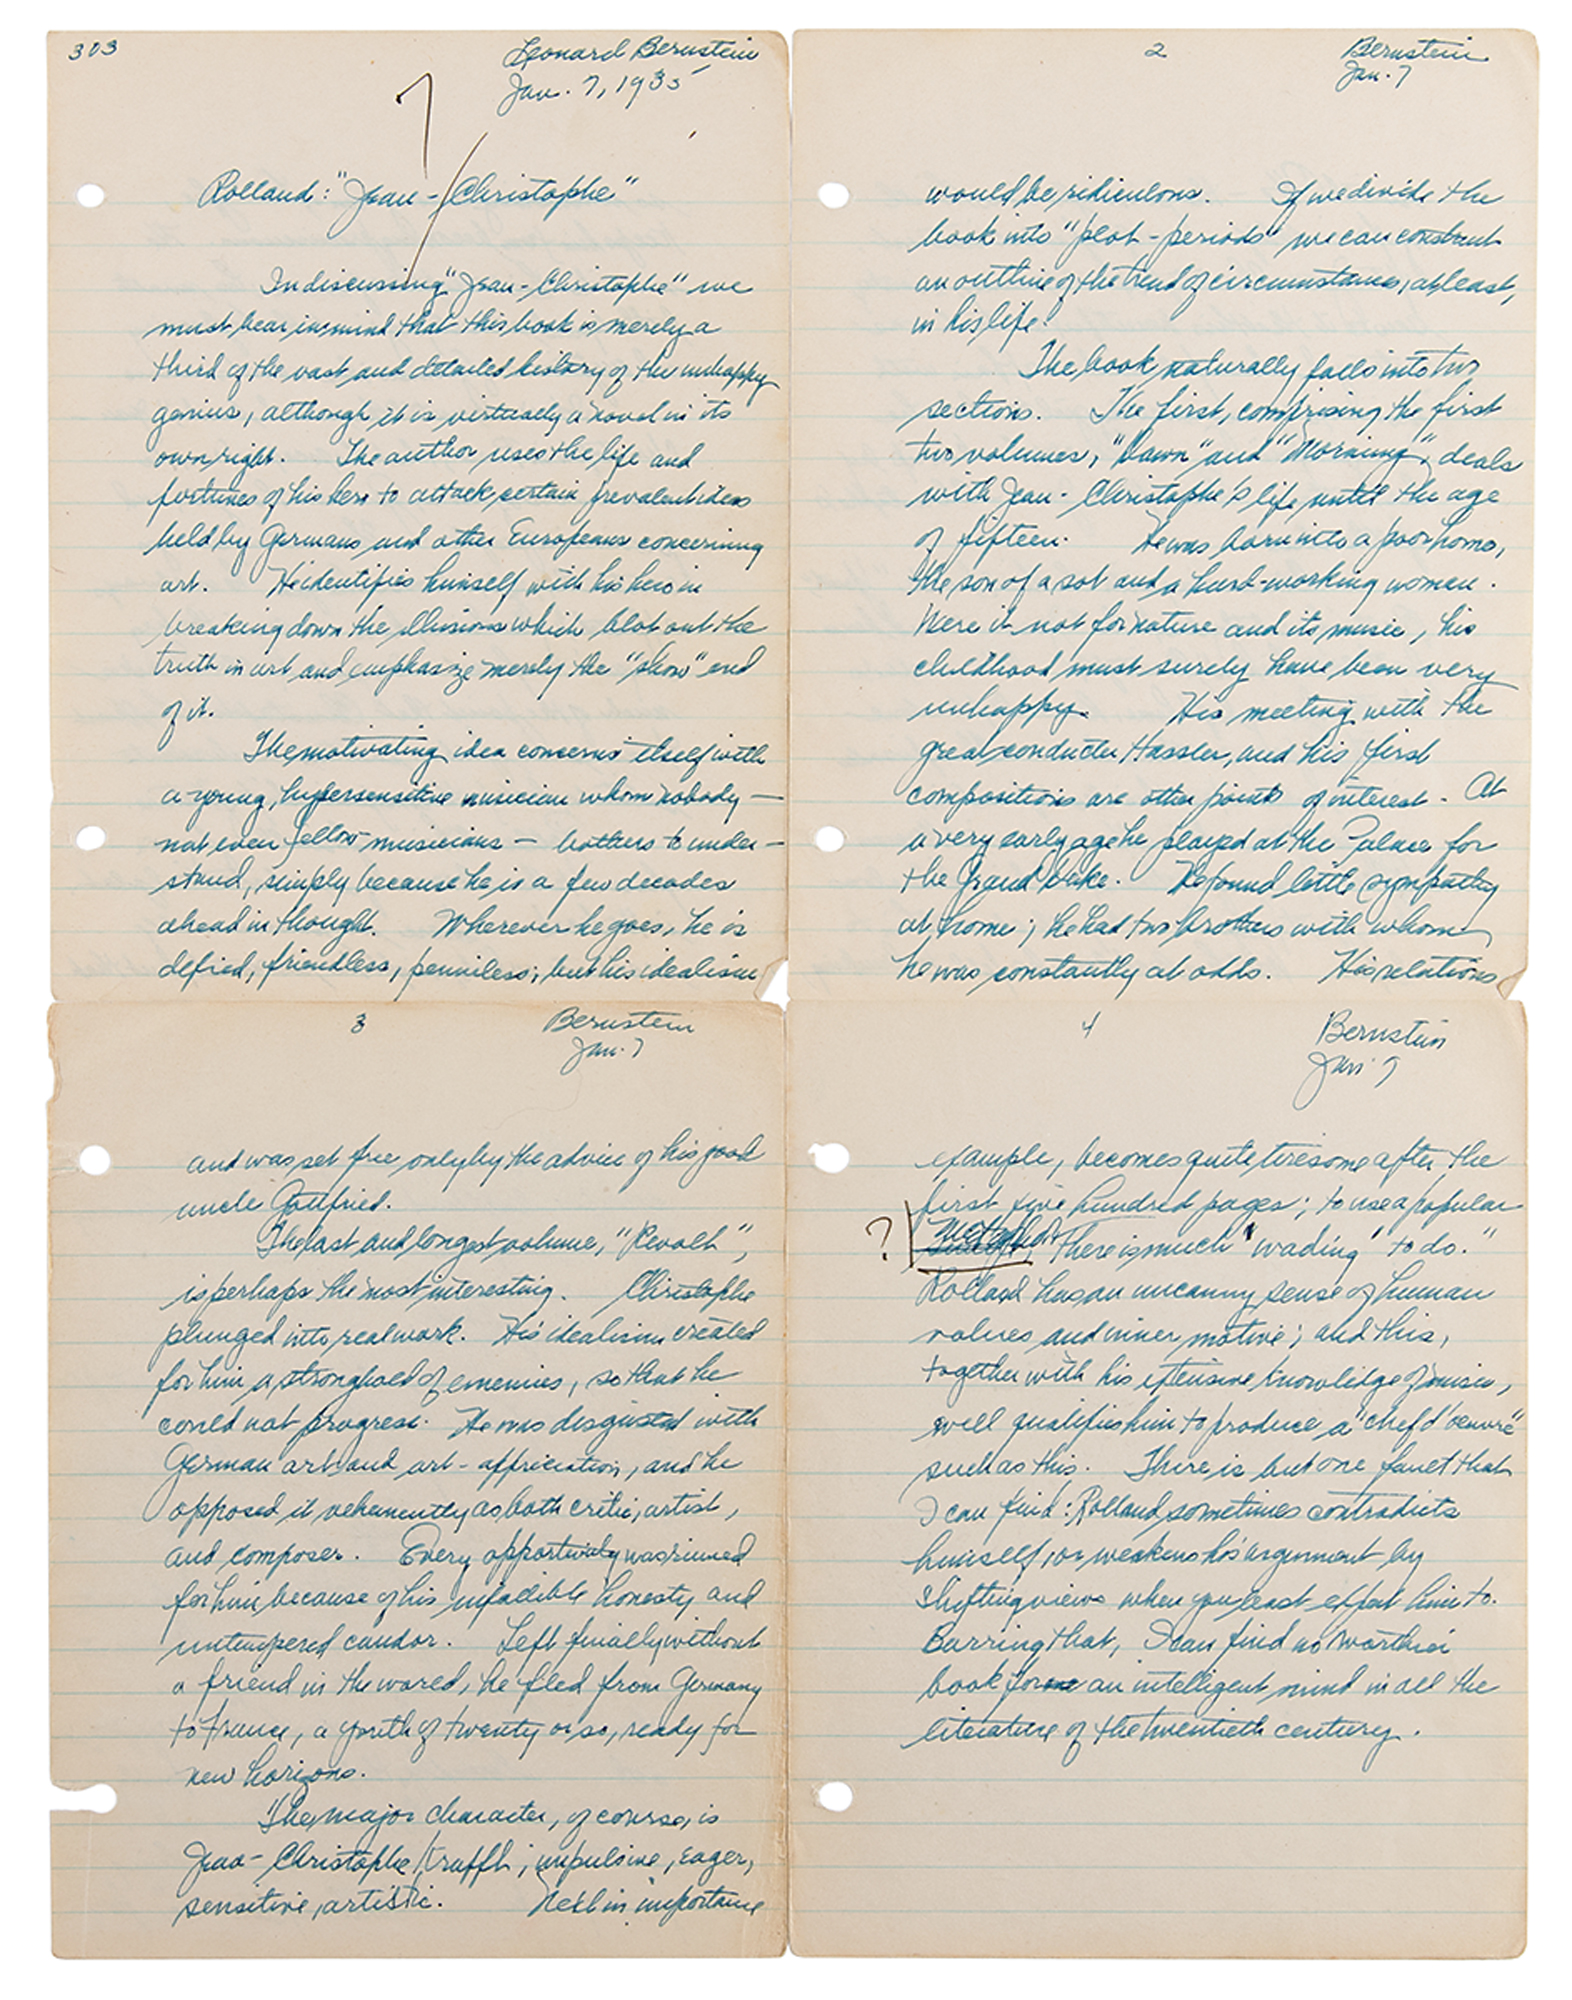 303
Leonard Bernstein
Jan. 7, 1935
Rolland: "Jean-Christophe"
In discussing "Jean-Christophe" we
must bear in mind that this book is merely a
third of the vast and detailed history of the unhappy
genius, although it is virtually a novel in its
own right. The author uses the life and
fortunes of his hero to attack certain prevalent ideas
held by Germans and other Europeans concerning
art. He identifies himself with his hero in
breaking down the illusions which blot out the
truth in art and emphasize merely the "show" end
of it.
The motivating idea concerns itself with
a young, hypersensitive musician whom nobody —
not even fellow-musicians — bothers to under-
stand, simply because he is a few decades
ahead in thought. Wherever he goes, he is
defied, friendless, penniless; but his idealism
2
Bernstein
Jan. 7
would be ridiculous. If we divide the
book into "plot-periods" we can construct
an outline of the trend of circumstances, at least,
in his life.
The book naturally falls into two
sections. The first, comprising the first
two volumes, "Dawn" and "Morning", deals
with Jean-Christophe's life until the age
of fifteen. He was born into a poor home,
the son of a sot and a hard-working woman.
Were it not for nature and its music, his
childhood must surely have been very
unhappy. His meeting with the
great conductor Hassler, and his first
compositions are other points of interest. At
a very early age he played at the Palace for
the Grand Duke. He found little sympathy
at home; he had two brothers with whom
he was constantly at odds. His relations
3
Bernstein
Jan. 7
and was set free only by the advice of his good
uncle Gottfried.
The last and longest volume, "Revolt",
is perhaps the most interesting. Christophe
plunged into real work. His idealism created
for him a stronghold of enemies, so that he
could not progress. He was disgusted with
German art and art-appreciation, and he
opposed it vehemently as both critic, artist,
and composer. Every opportunity was ruined
for him because of his infallible honesty and
untempered candor. Left finally without
a friend in the world, he fled from Germany
to France, a youth of twenty or so, ready for
new horizons.
The major character, of course, is
Jean-Christophe Krafft; impulsive, eager,
sensitive, artistic. Next in importance
4
Bernstein
Jan 7
example, becomes quite tiresome after the
first five hundred pages; to use a popular
? metaphor, "There is much 'wading' to do."
Rolland has an uncanny sense of human
values and inner motive; and this,
together with his extensive knowledge of music,
well qualifies him to produce a "chef d'oeuvre"
such as this. There is but one fault that
I can find: Rolland sometimes contradicts
himself, or weakens his argument by
shifting views when you least expect him to.
Barring that, I can find no worthier
book for an intelligent mind in all the
literature of the twentieth century.